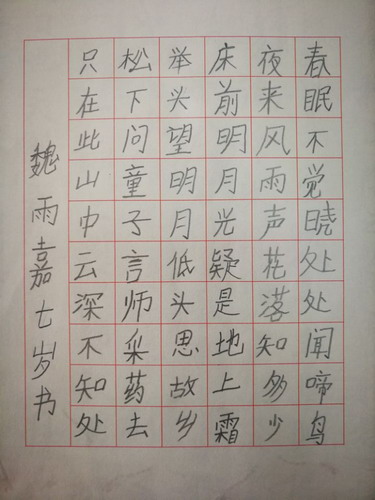 春眠不觉晓处处闻啼鸟
夜来风雨声花落知多少
床前明月光疑是地上霜
举头望明月低头思故乡
松下问童子言师采药去
只在此山中云深不知处
魏雨嘉七岁书